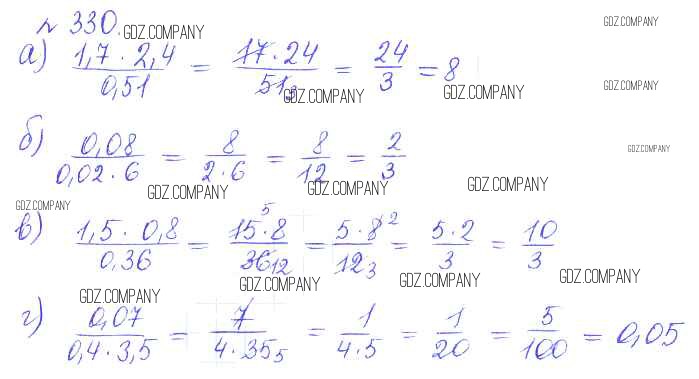 № 330. GDZ.COMPANY GDZ.COMPANY
а) 1,7 · 2,4 / 0,51 = 17 · 24 / 51 3 = 24 / 3 = 8
GDZ.COMPANY GDZ.COMPANY GDZ.COMPANY
б) 0,08 / 0,02 · 6 = 8 / 2 · 6 = 8 / 12 = 2 / 3
GDZ.COMPANY
GDZ.COMPANY GDZ.COMPANY GDZ.COMPANY
GDZ.COMPANY
в) 1,5 · 0,8 / 0,36 = 15 5 · 8 / 36 12 = 5 · 8 2 / 12 3 = 5 · 2 / 3 = 10 / 3
GDZ.COMPANY GDZ.COMPANY GDZ.COMPANY GDZ.COMPANY
г) 0,07 / 0,4 · 3,5 = 7 / 4 · 35 5 = 1 / 4 · 5 = 1 / 20 = 5 / 100 = 0,05